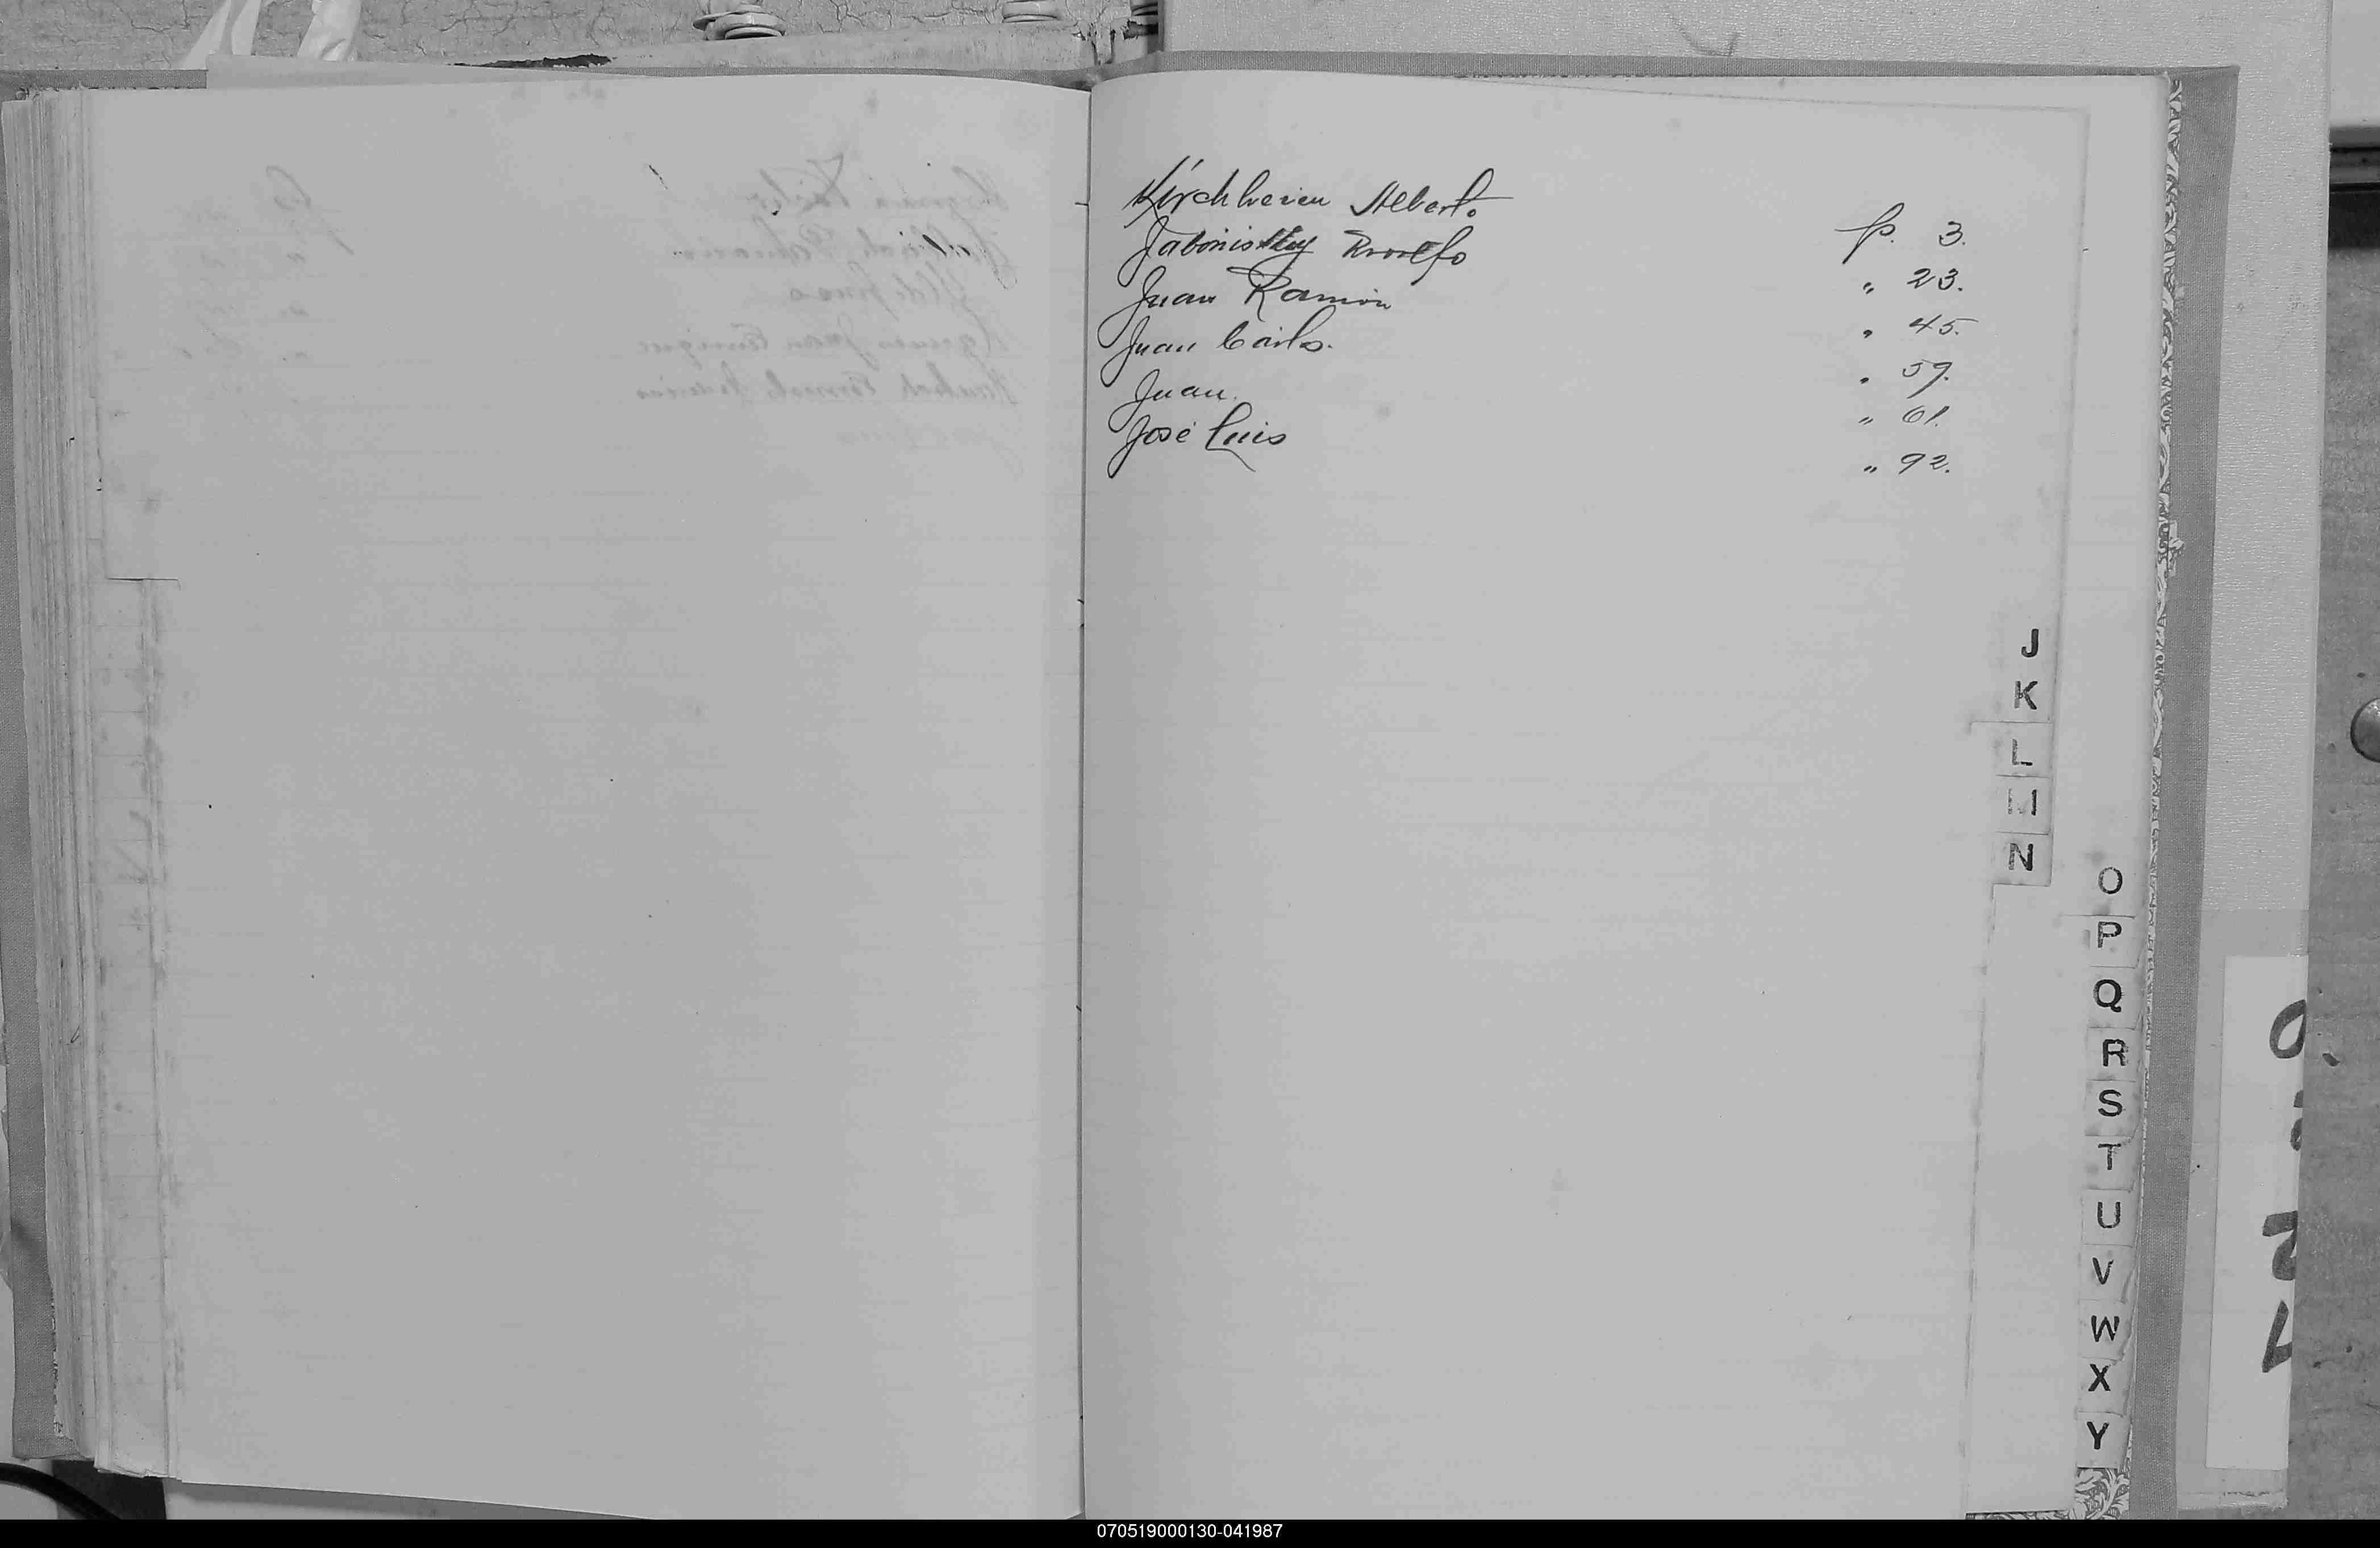 Kirchheien Alberto f. 3.
Jabonisky Rodolfo " 23.
Juan Ramón " 45.
Juan Carlos. " 59.
Juan. " 61.
José Luis " 92.
J
K
L
M
N
O
P
Q
R
S
T
U
V
W
X
Y
070519000130-041987